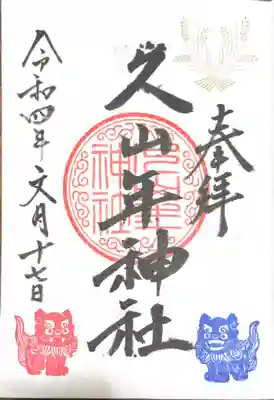 奉拝
久山年神社
令和四年文月十七日